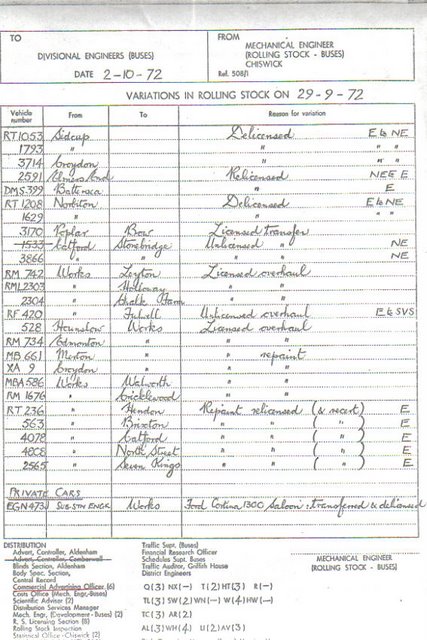 TO
DIVISIONAL ENGINEERS (BUSES)
DATE 2-10-72
FROM
MECHANICAL ENGINEER
(ROLLING STOCK - BUSES)
CHISWICK
Ref. 508/1
VARIATIONS IN ROLLING STOCK ON 29-9-72
Vehicle number From To Reason for variation
RT1053 Sidcup Delicensed E & NE
1793 " " " "
3714 Croydon " " "
2591 Elmers End Relicensed NEE E
DMS399 Battersea " E
RT1208 Norbiton Delicensed E & NE
1629 " " " "
3170 Poplar Bow Licensed transfer
1533 Catford Stonebridge Unlicensed NE
3866 " " " NE
RM 742 Works Leyton Licensed overhaul
RML2303 " Holloway " "
2304 " Chalk Farm " "
RF 420 " Fulwell Unlicensed overhaul E & SVS
528 Hounslow Works Licensed overhaul
RM 734 Edmonton " " "
MB 661 Merton " " repaint
XA 9 Croydon " " "
MBA586 Works Walworth " "
RM 1676 " Cricklewood " "
RT 236 " Hendon Repaint relicensed (& recert) E
563 " Brixton " " ( " ) E
4078 " Catford " " ( " ) E
4808 " North Street " " ( " ) E
2565 " Seven Kings " " ( " ) E
PRIVATE CARS
EGN473J SUB-STN ENGR Works Ford Cortina 1300 Saloon: transferred & delicensed
DISTRIBUTION
Advert. Controller, Aldenham
Advert. Controller, Camberwell
Blinds Section, Aldenham
Body Spec. Section,
Central Record
Commercial Advertising Officer (6)
Costs Office (Mech. Engr.-Buses)
Scientific Adviser
Distribution Services Manager
Mech. Engr, (Development - Buses) (2)
R. S. Licensing Section (8)
Rolling Stock Inspection
Statistical Office - Chiswick (2)
Traffic Supt. (Buses)
Financial Research Officer
Schedules Supt. Buses
Traffic Auditor, Griffith House
District Engineers
Q(3) NX(-) T(2) HT(3) R(-)
TL(3) SW(2) WN(-) W(4) HW(-)
TC(3) AR(2)
AL(3) WH(4) LI(2) AV(3)
MECHANICAL ENGINEER
(ROLLING STOCK - BUSES)